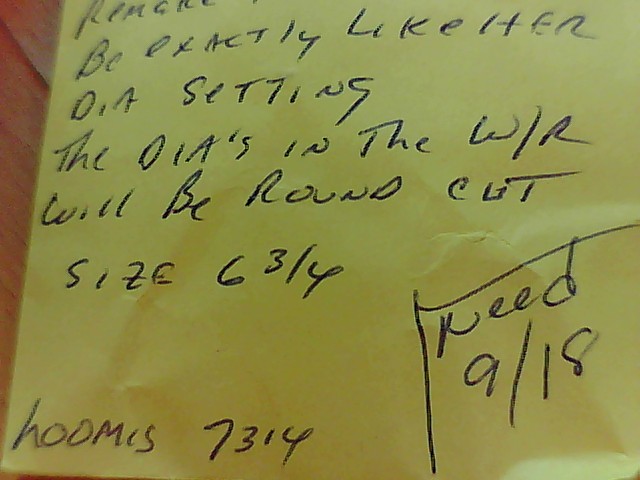 Be EXACTLY LIKE HER
DIA SETTING
The DIA'S IN The W/R
Will Be ROUND CUT
SIZE 6 3/4
Need
9/18
LOOMIS 7314